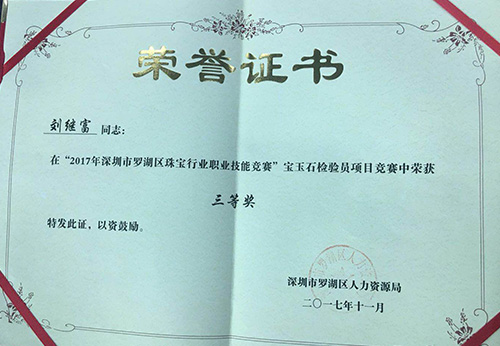 荣誉证书
刘继富 同志：
在“2017年深圳市罗湖区珠宝行业职业技能竞赛”宝玉石检验员项目竞赛中荣获
三等奖
特发此证，以资鼓励。
深圳市罗湖区人力资源局
二〇一七年十一月